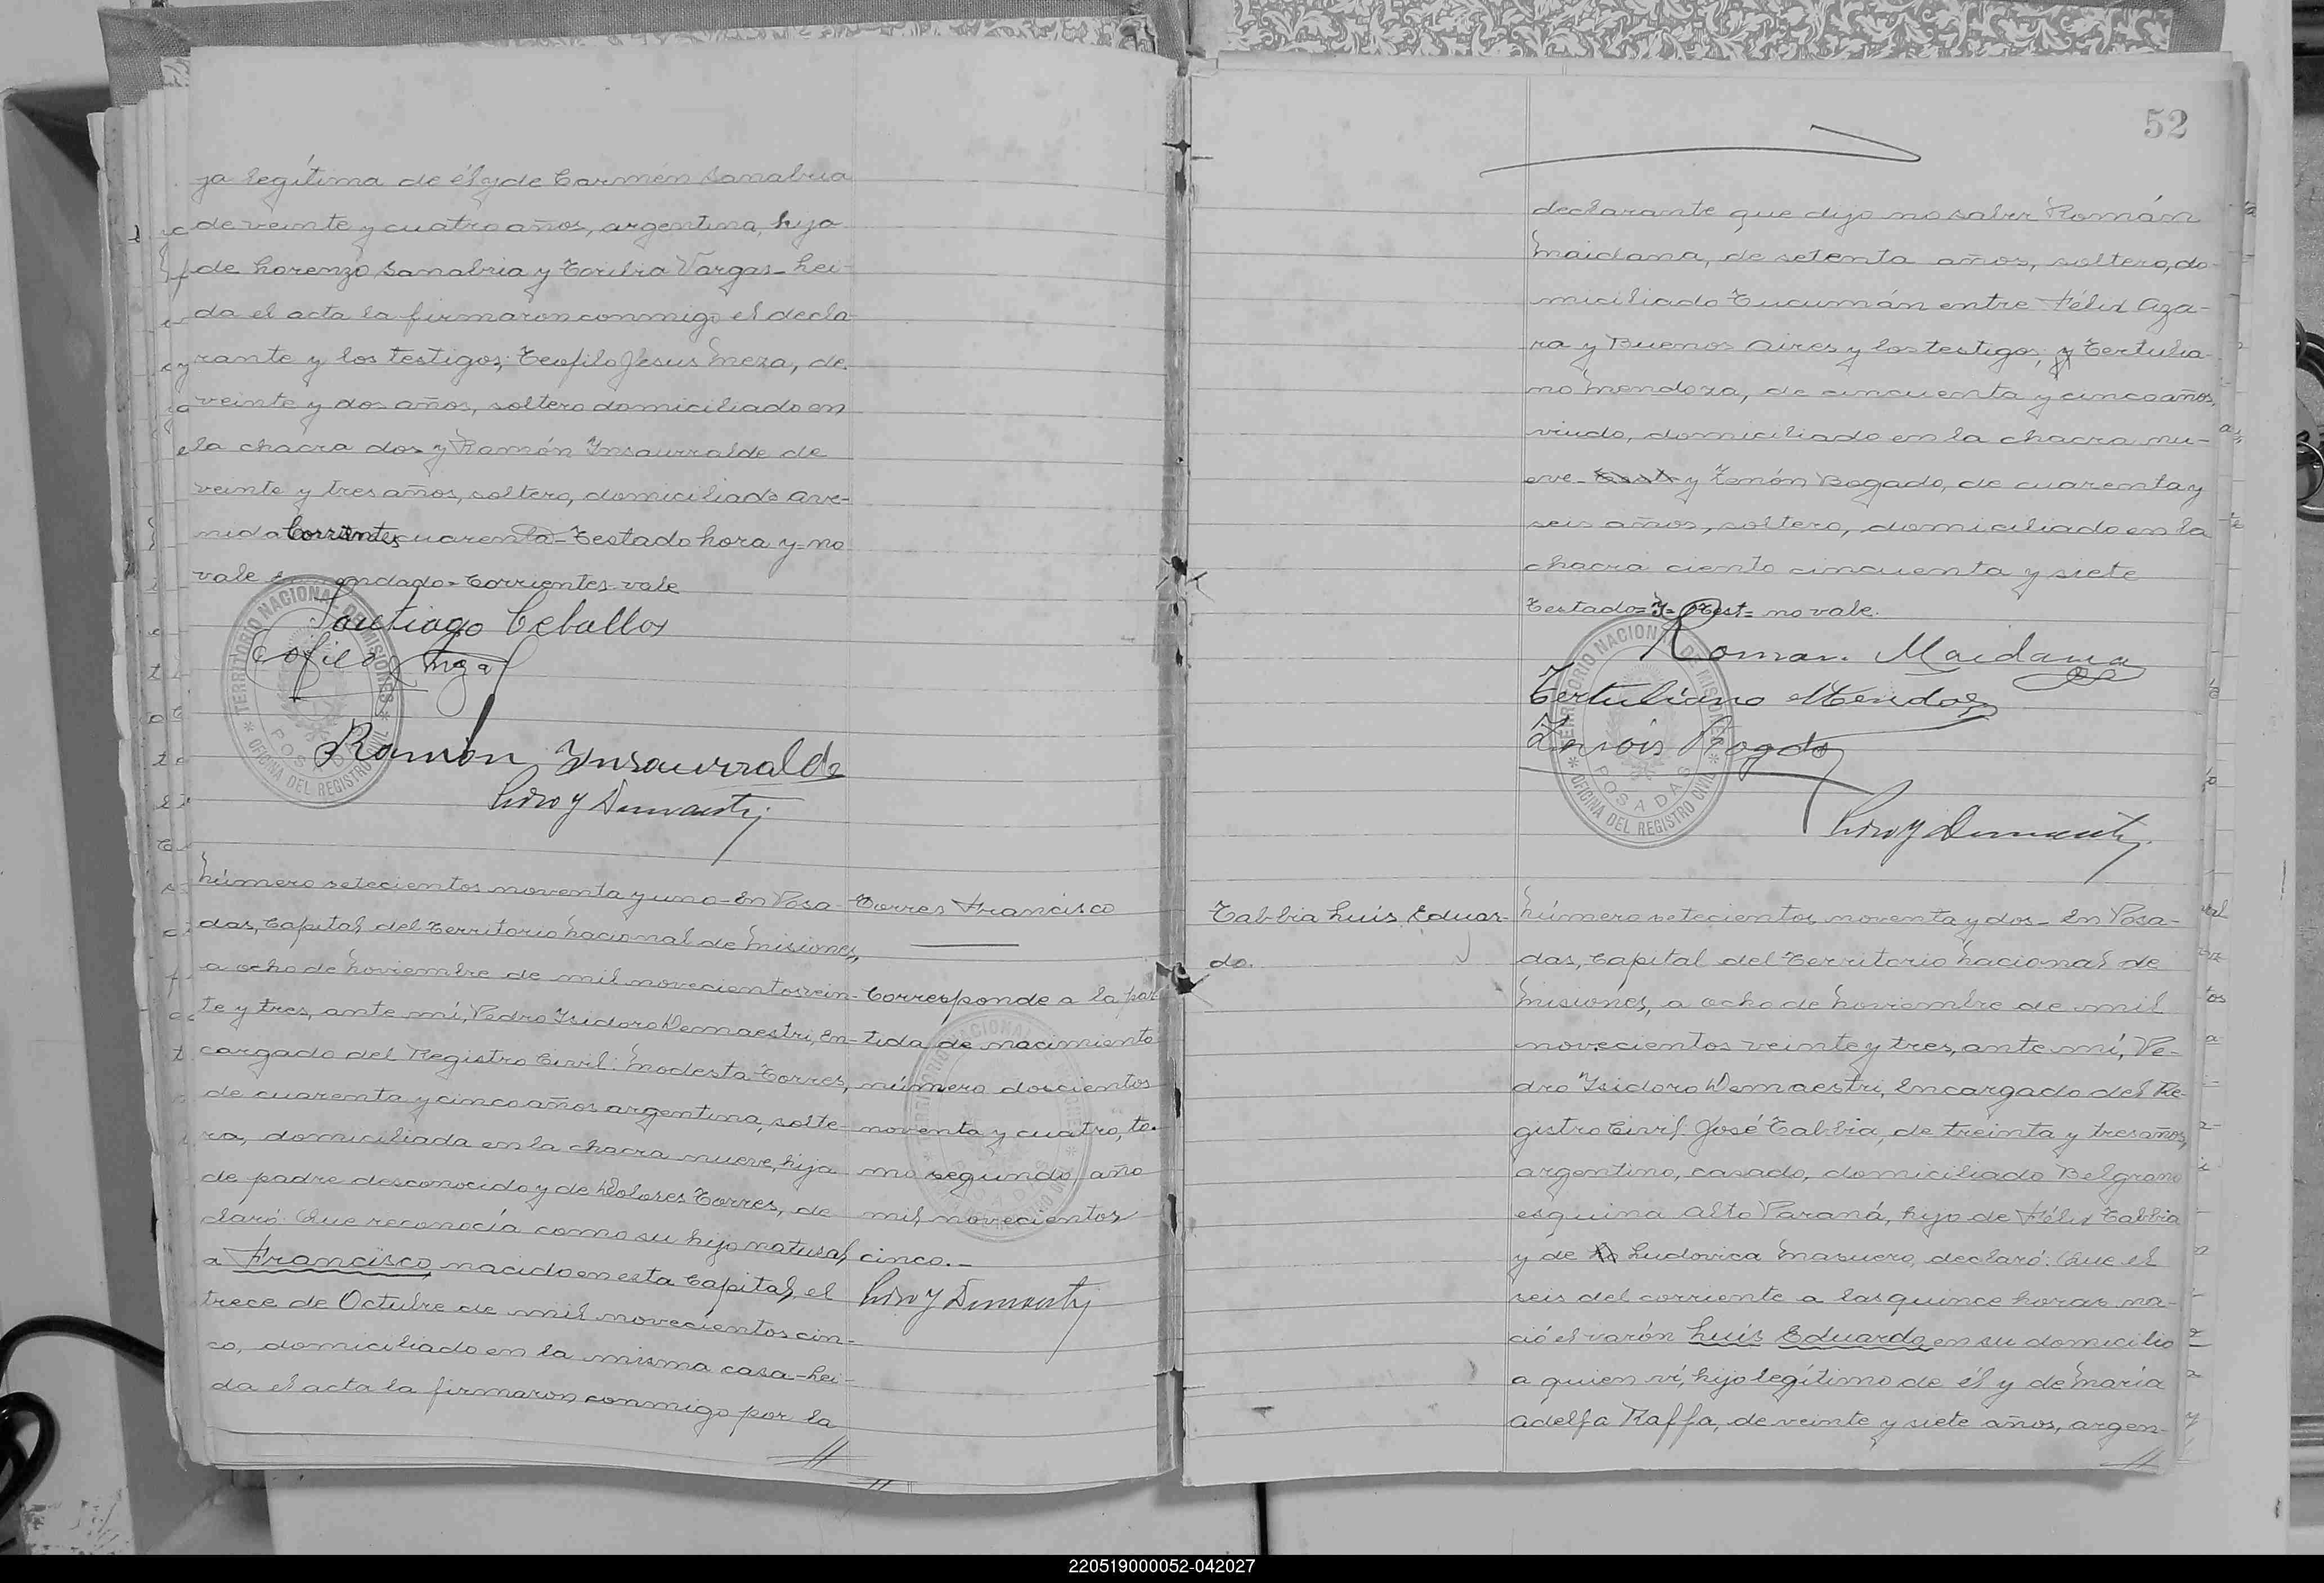 ja legítima de él y de Carmén Sanabria
de veinte y cuatro años, argentina, hija
de Lorenzo Sanabria y Toribia Vargas - Leí-
da el acta la firmaron conmigo el decla-
rante y los testigos; Teofilo Jesus Meza, de
veinte y dos años, soltero domiciliado en
la chacra dos y Ramón Insaurralde de
veinte y tres años, soltero, domiciliado ave-
nida Corrientes cuarenta - Testado hora y no
vale = Corrientes vale
Santiago Ceballos
Ramón Insaurralde
TERRITORIO NACIONAL DE MISIONES
* OFICINA DEL REGISTRO CIVIL *
POSADAS
Número setecientos noventa y uno - En Posa-
das, Capital del Territorio Nacional de Misiones,
a ocho de Noviembre de mil novecientos vein-
te y tres, ante mí, Pedro Isidoro Demaestri, En-
cargado del Registro Civil: Modesta Torres,
de cuarenta y cinco años argentina, solte-
ra, domiciliada en la chacra nueve, hija
de padre desconocido y de Dolores Torres, de
claró: Que reconocía como su hijo natural
a Francisco nacido en esta Capital, el
trece de Octubre de mil novecientos cin-
co, domiciliado en la misma casa - Leí-
da el acta la firmaron conmigo por la
Torres Francisco
Corresponde a la par
tida de nacimiento
número doscientos
noventa y cuatro, to-
mo segundo año
mil novecientos
cinco.-
52
declarante que dijo no saber Román
Maidana, de setenta años, soltero, do-
miciliado Tucumán entre Félix Aza-
ra y Buenos Aires y los testigos; y Tertulia-
no Mendoza, de cincuenta y cinco años,
viudo, domiciliado en la chacra nu-
eve - y Zenón Bogado, de cuarenta y
seis años, soltero, domiciliado en la
chacra ciento cincuenta y siete
Testado = y = Test = no vale.
Roman Maidana
Tertuliano Mendoza
TERRITORIO NACIONAL DE MISIONES
* OFICINA DEL REGISTRO CIVIL *
POSADAS
Tabbia Luis Eduar-
do.
Número setecientos noventa y dos - En Posa-
das, Capital del Territorio Nacional de
Misiones, a ocho de Noviembre de mil
novecientos veinte y tres, ante mí, Pe-
dro Isidoro Demaestri, Encargado del Re-
gistro Civil: José Tabbia, de treinta y tres años,
argentino, casado, domiciliado Belgrano
esquina Alto Paraná, hijo de Félix Tabbia
y de Ludovica Masuero, declaró: Que el
seis del corriente a las quince horas na-
ció el varón Luis Eduardo en su domicilio
a quien ví, hijo legítimo de él y de María
Adelfa Raffa, de veinte y siete años, argen-
220519000052-042027